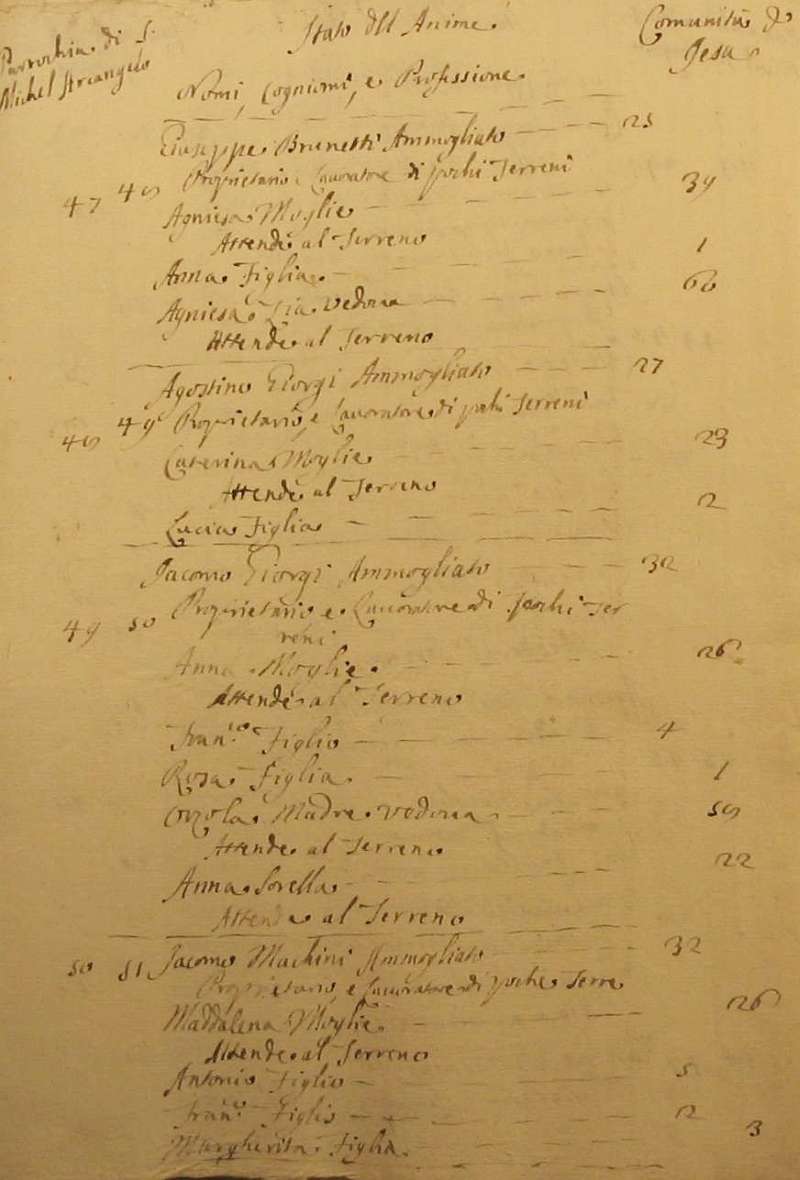 Parrochia di S.
Michel Arcangelo
Stato dell Anime.
Comunità di
Jesa
Nomi, Cogniomi, e Professione.
Giuseppe Brunetti Ammogliato 25
47 Proprietario e Lavoratore di pochi Terreni
Agniesa Moglie 39
Attende al Terreno
Anna Figlia 1
Agniesa Zia Vedova 60
Attende al Terreno
Agostino Giorgi Ammogliato 27
49 Proprietario, e Lavoratore di pochi Terreni
Caterina Moglie 23
Attende al Terreno
Lucia Figlia 2
Jacomo Giorgi Ammogliato 32
49 50 Proprietario e Lavoratore di pochi Ter
reni
Anna Moglie. 26
Attende al Terreno
Fran.co Figlio 4
Rosa Figlia. 1
Orzola Madre Vedova
Attende al Terreno
Anna Sorella 22
Attende al Terreno
50 51 Jacomo Machini Ammogliato 32
Proprietario, e Lavoratore di poche Terre
Maddalena Moglie. 26
Attende al Terreno
Antonio Figlio 5
Fran.co Figlio 2
Margherita Figlia. 3